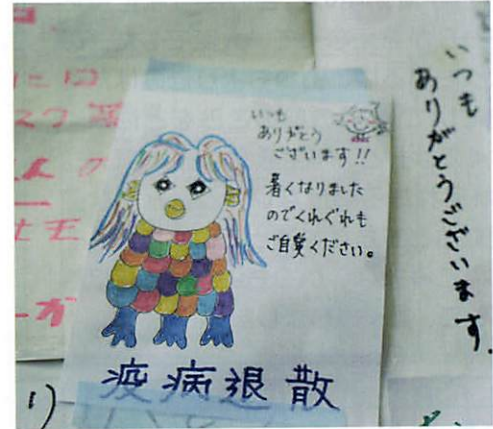 いつも
ありがとう
ございます!!
暑くなりました
のでくれぐれも
ご自愛ください。
疫病退散
いつも
ありがとうございます。